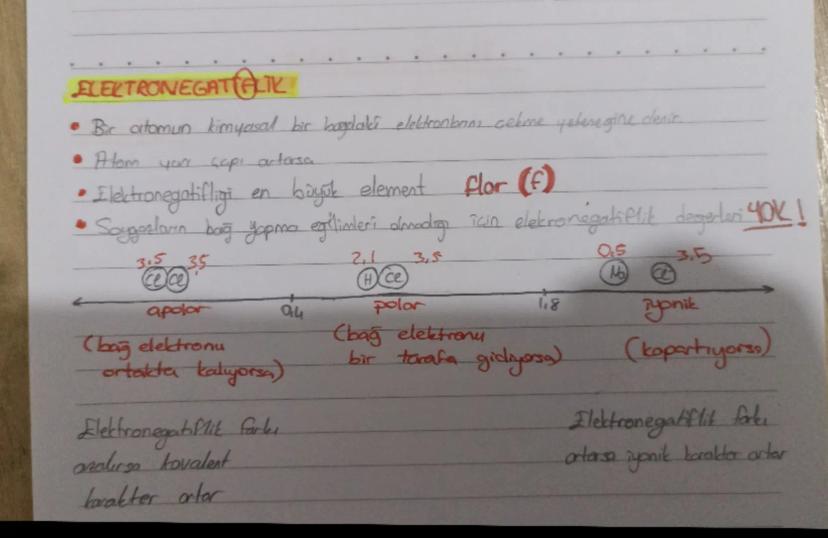 ELEKTRONEGATİFLİK
• Bir atomun kimyasal bir bağdaki elektronlarını çekme yeteneğine denir
• Atom yarı çapı artarsa
• Elektronegatifligi en büyük element flor (f)
• Soygazların bağ yapma eğilimleri olmadığı için elekronegatiflik degerleri YOK!
3.5 3,5 2,1 3,5 0,5 3.5
Cl Cl H Cl Na Cl
apolar 0,4 polar 1.8 iyonik
(bağ elektronu ortakta kalıyorsa)
(bağ elektronu bir tarafa gidiyorsa)
(kopartıyorsa)
Elektronegatiflik farkı
azalırsa kovalent
karakter artar
Elektronegatiflik farkı
artarsa iyonik karakter artar